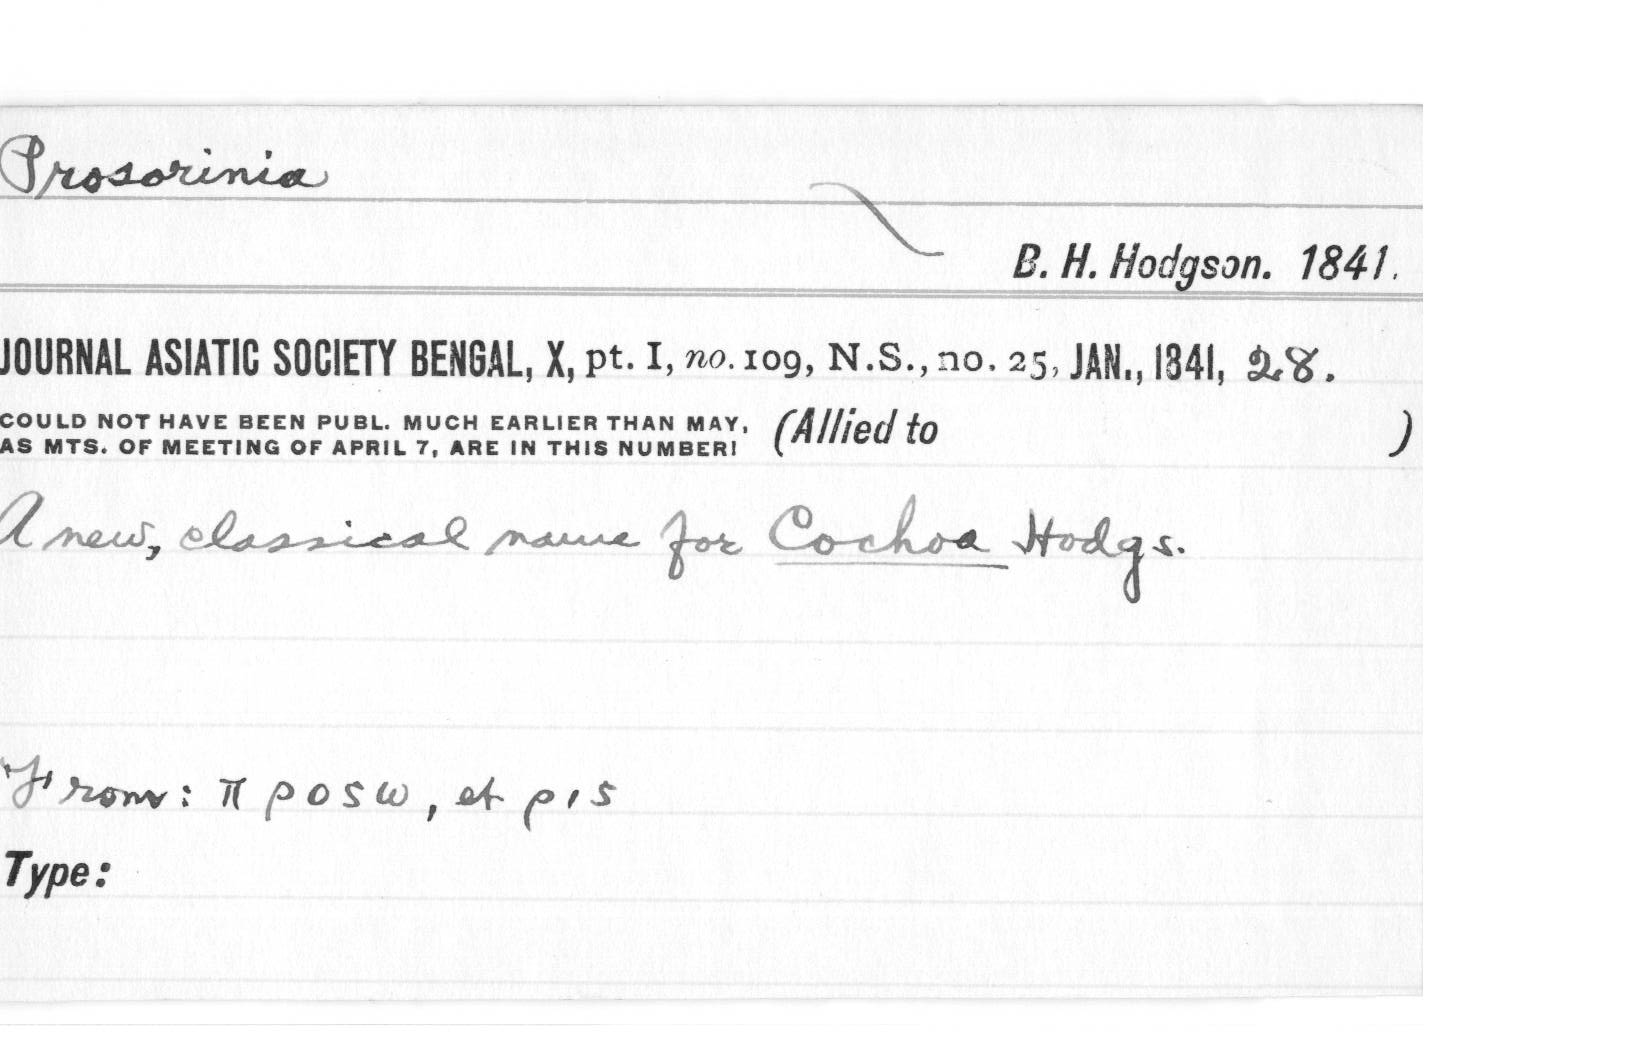 Prosorinia
B. H. Hodgson. 1841.
JOURNAL ASIATIC SOCIETY BENGAL, X, pt. I, no. 109, N.S., no. 25, JAN., 1841, 28.
COULD NOT HAVE BEEN PUBL. MUCH EARLIER THAN MAY, (Allied to )
AS MTS. OF MEETING OF APRIL 7, ARE IN THIS NUMBER!
A new, classical name for Cochoa Hodgs.
From: προσω, et ρις
Type: